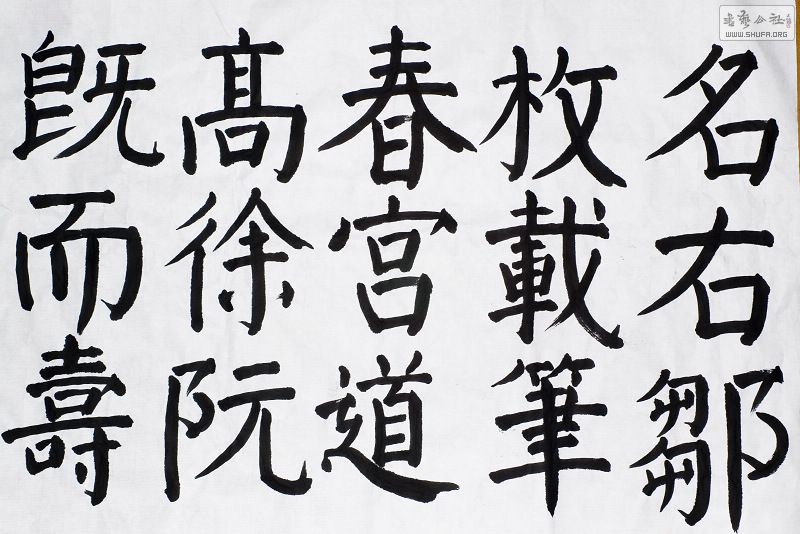 名右鄒
枚載筆
春宮道
高徐阮
既而壽
書藝公社
WWW.SHUFA.ORG